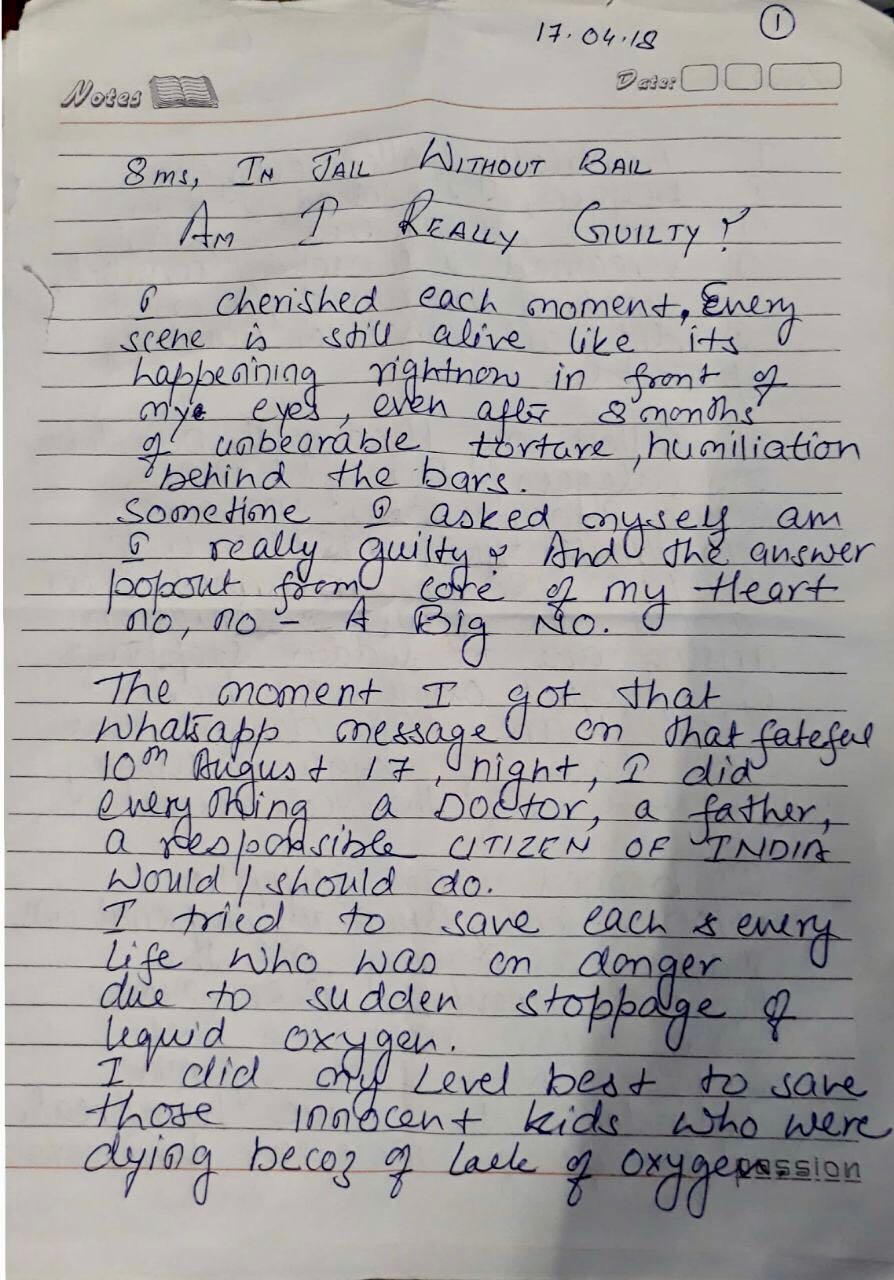 17.04.18
1
Notes
Date:
8 ms, IN JAIL WITHOUT BAIL
AM I REALLY GUILTY?
I cherished each moment, Every
scene is still alive like its
happenining rightnow in front of
mye eyes, even after 8 months
of unbearable torture, humiliation
behind the bars.
Sometime I asked myself am
I really guilty? And the answer
popout from core of my Heart
no, no - A Big NO.
The moment I got that
Whatsapp message on that fateful
10th August 17, night, I did
everything a Doctor, a father,
a responsible CITIZEN OF INDIA
Would / should do.
I tried to save each & every
life who was on danger
due to sudden stoppage of
lequid oxygen.
I did my Level best to save
those innocent kids who were
dying becoz of lack of oxygen.
passion